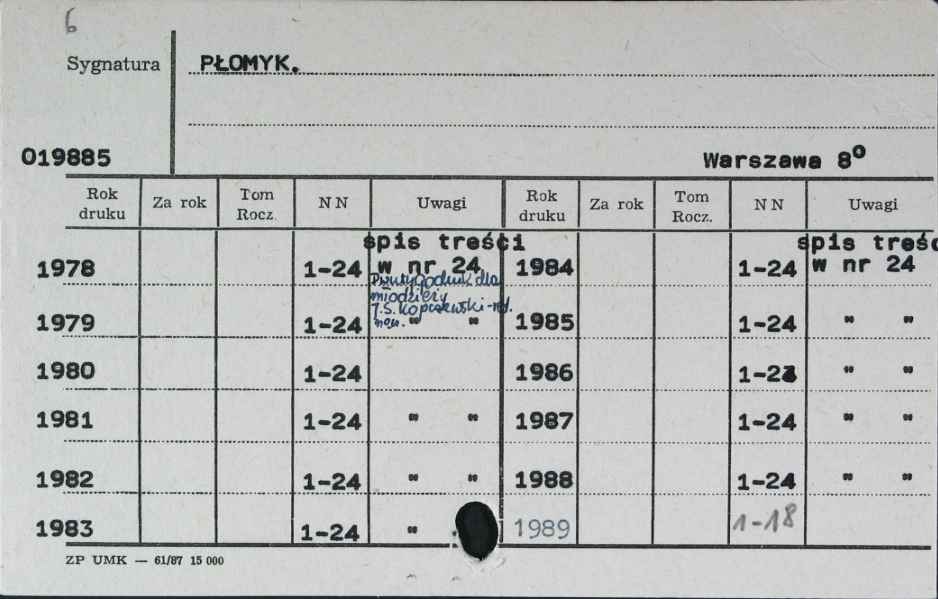 6
Sygnatura PŁOMYK.
019885 Warszawa 8º
Rok druku Za rok Tom Rocz. NN Uwagi Rok druku Za rok Tom Rocz. NN Uwagi
spis treści spis treśc
1978 1-24 w nr 24 1984 1-24 w nr 24
Dwutygodnik dla
młodzieży
J.S. Kopczewski-red.
1979 1-24 " " 1985 1-24 " "
1980 1-24 1986 1-23 " "
1981 1-24 " " 1987 1-24 " "
1982 1-24 " " 1988 1-24 " "
1983 1-24 " 1989 1-18
ZP UMK — 61/87 15 000